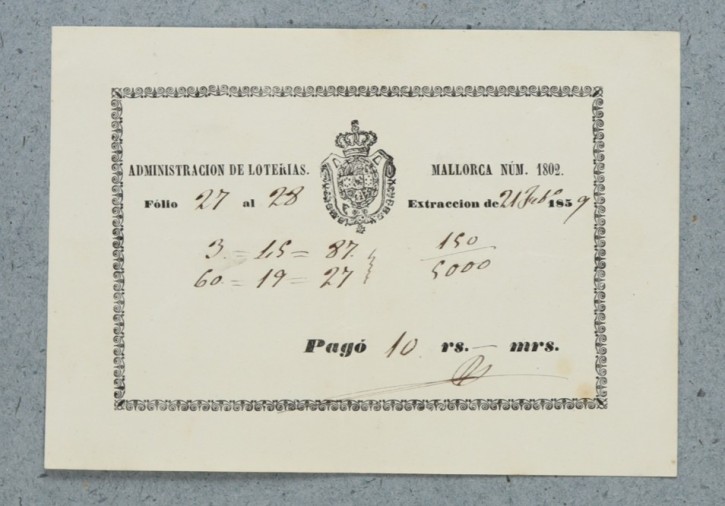 ADMINISTRACION DE LOTERIAS. MALLORCA NÚM. 1802.
Fólio 27 al 28 Extraccion de 21 1859
3 = 45 = 87 150
60 = 19 = 27 5000
Pagó 10 rs. — mrs.